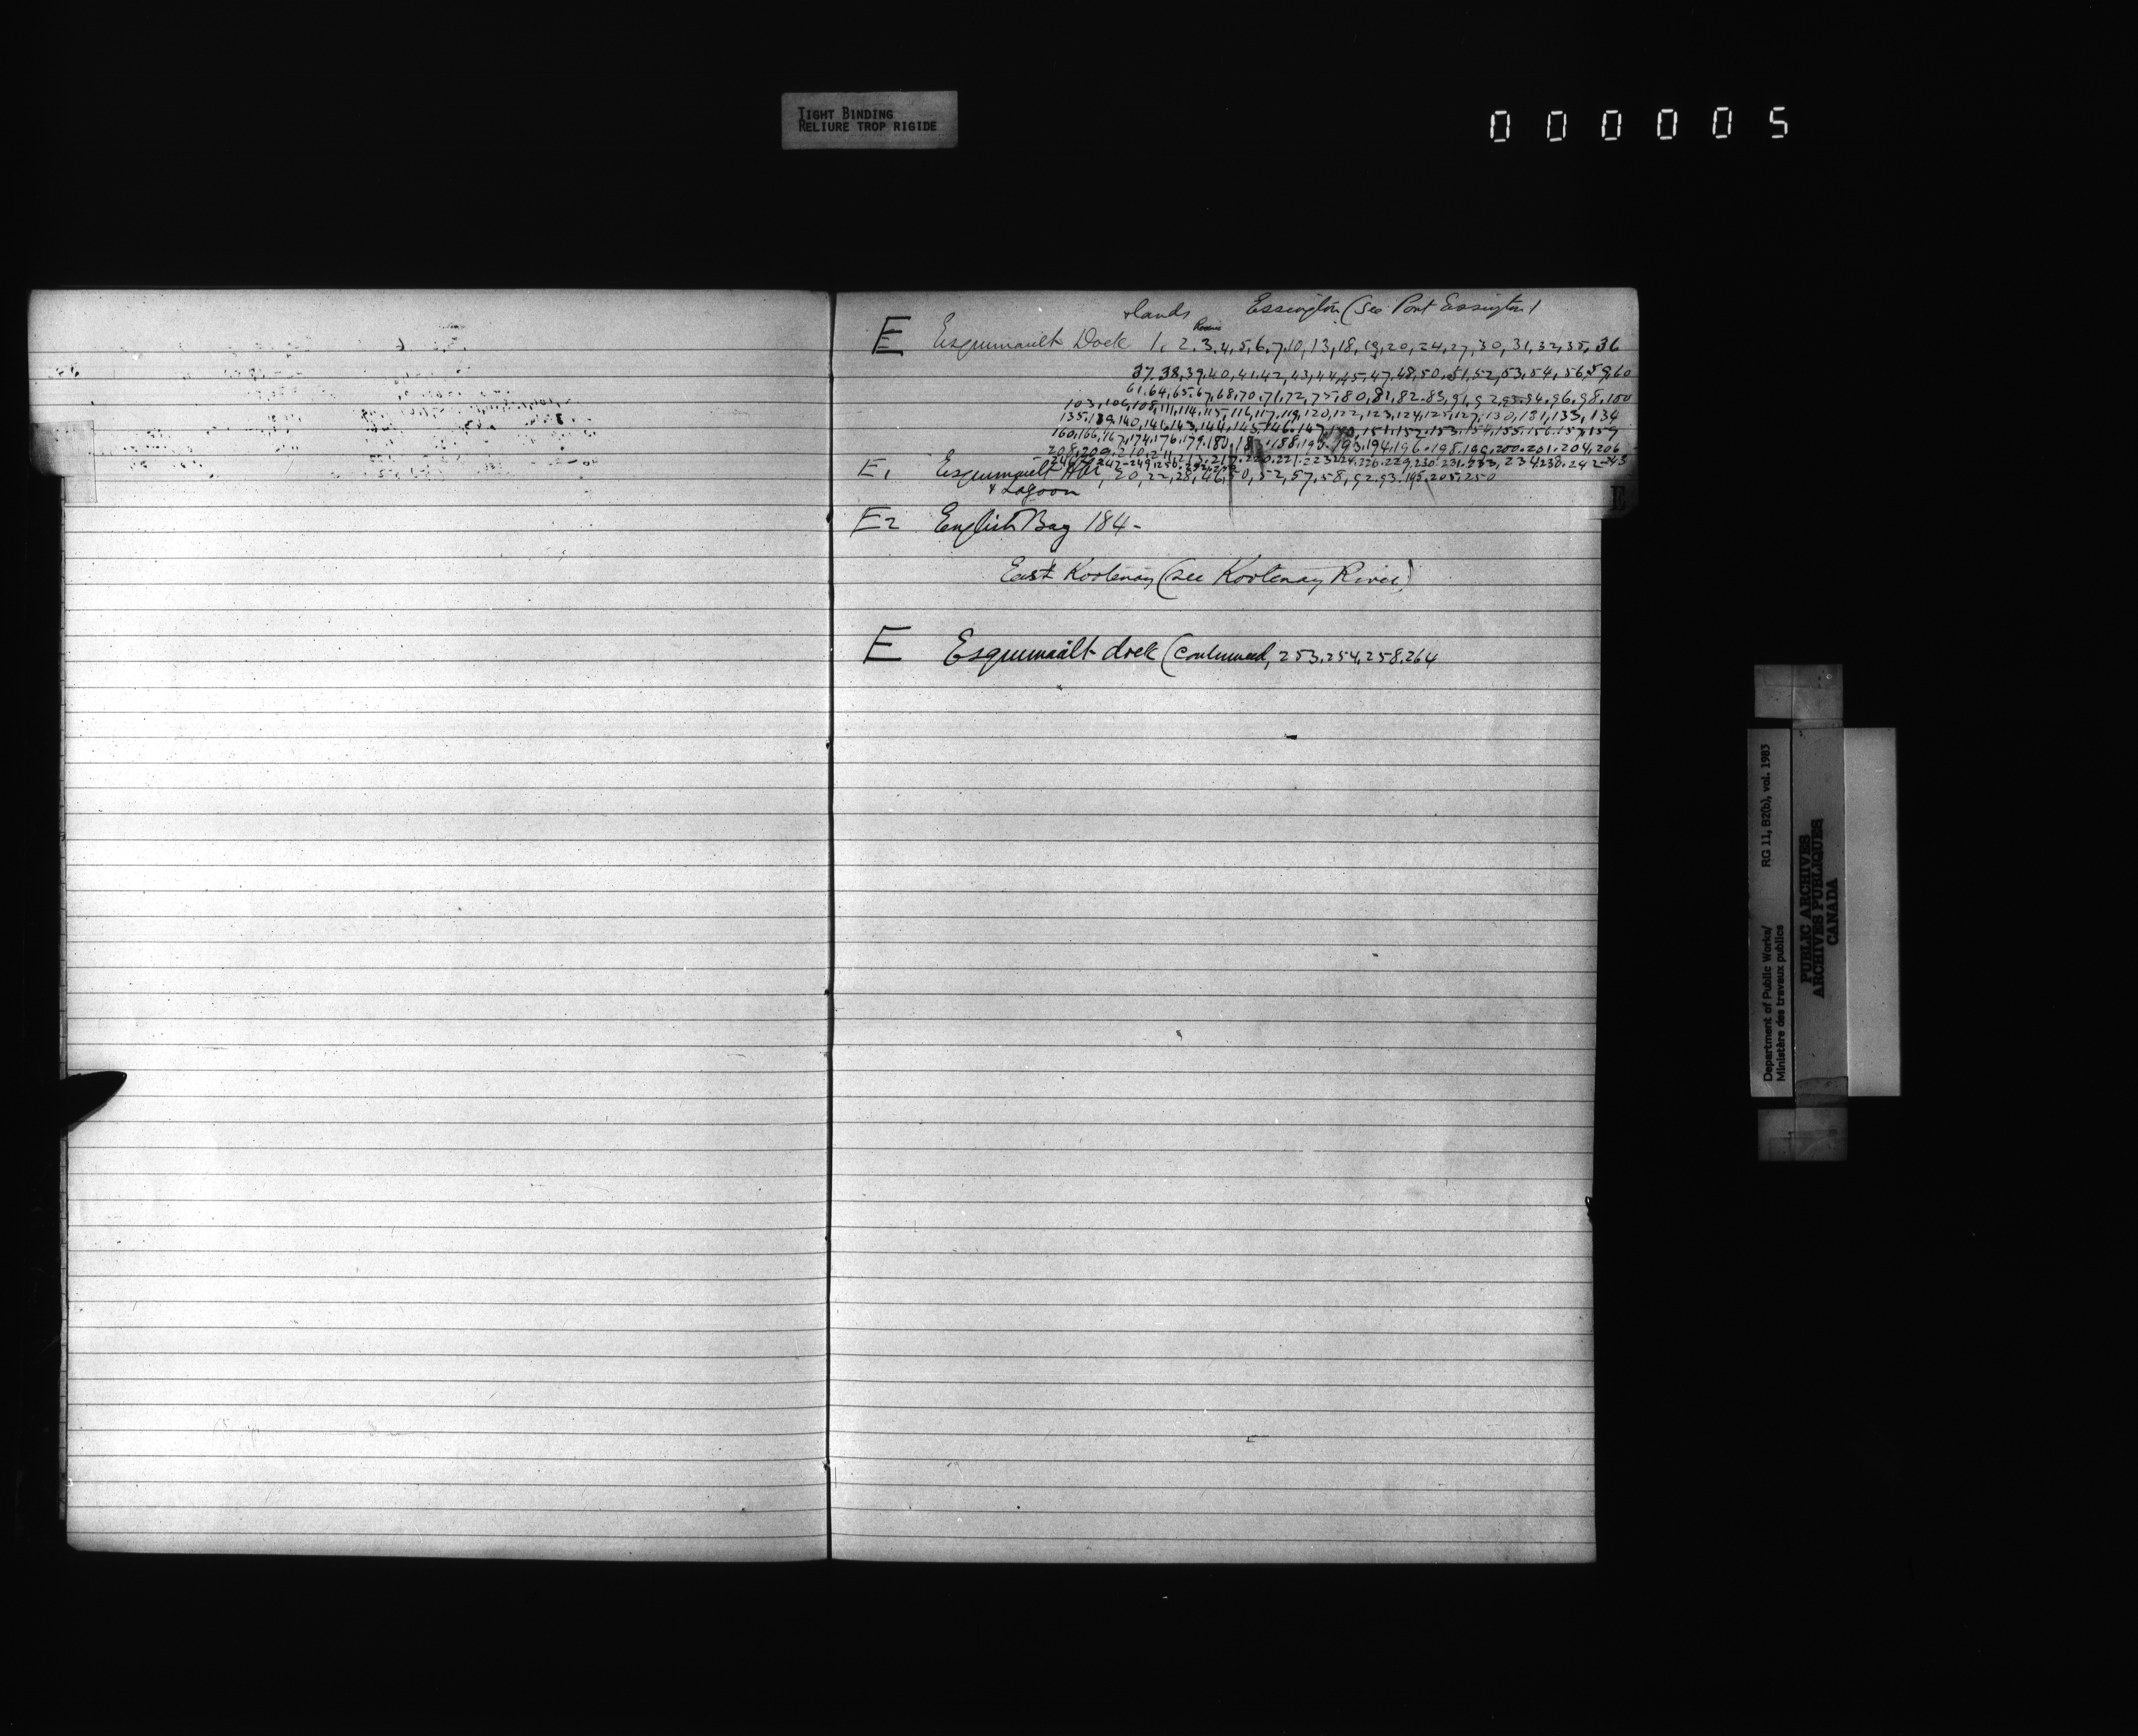 TIGHT BINDING
RELIURE TROP RIGIDE
000005
& lands Essington (See Port Essington)
E Esquimault Dock 1, 2, 3, 4, 5, 6, 7, 10, 13, 18, 19, 20, 24, 27, 30, 31, 32, 35, 36
37, 38, 39, 40, 41, 42, 43, 44, 45, 47, 48, 50, 51, 52, 53, 54, 56, 59, 60
61, 64, 65, 67, 68, 70, 71, 72, 75, 80, 81, 82, 83, 91, 92, 93, 94, 96, 98, 100
103, 106, 108, 111, 114, 115, 116, 117, 119, 120, 122, 123, 124, 125, 127, 130, 131, 133, 134
135, 139, 140, 141, 143, 144, 145, 146, 147, 151, 152, 153, 154, 155, 156, 157, 159
160, 166, 167, 174, 176, 179, 180, 188, 193, 194, 196, 198, 199, 200, 201, 204, 206
208, 209, 210, 211, 213, 217, 220, 221, 223, 224, 226, 229, 230, 231, 234, 238, 242
E1 Esquimault Hbr, 20, 22, 28, 46, 50, 52, 57, 58, 92, 93, 195, 205, 250
& Lagoon
E2 English Bay 184-
East Kootenay (see Kootenay River)
E Esquimault dock (continued, 253, 254, 258, 264
E
Department of Public Works/ RG 11, B2(b), vol. 1983
Ministère des travaux publics
PUBLIC ARCHIVES
ARCHIVES PUBLIQUES
CANADA